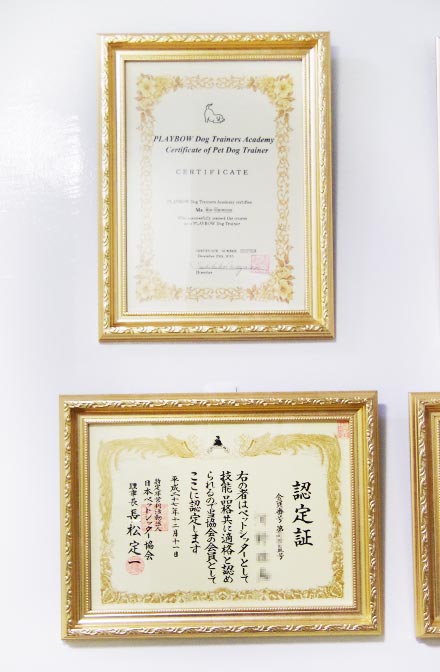 PLAYBOW Dog Trainers Academy
Certificate of Pet Dog Trainer
CERTIFICATE
PLAYBOW Dog Trainers Academy certifies
Ms.
has successfully passed the course
as a PLAYBOW Dog Trainer
CERTIFICATE NUMBER
December 20th,
Director
認定証
会員番号 第 号
右の者はペットシッターとして
技能品格共に適格と認め
られるので当協会の会員として
ここに認定します
平成二十七年十二月十一日
特定非営利活動法人
日本ペットシッター協会
理事長 長松定一